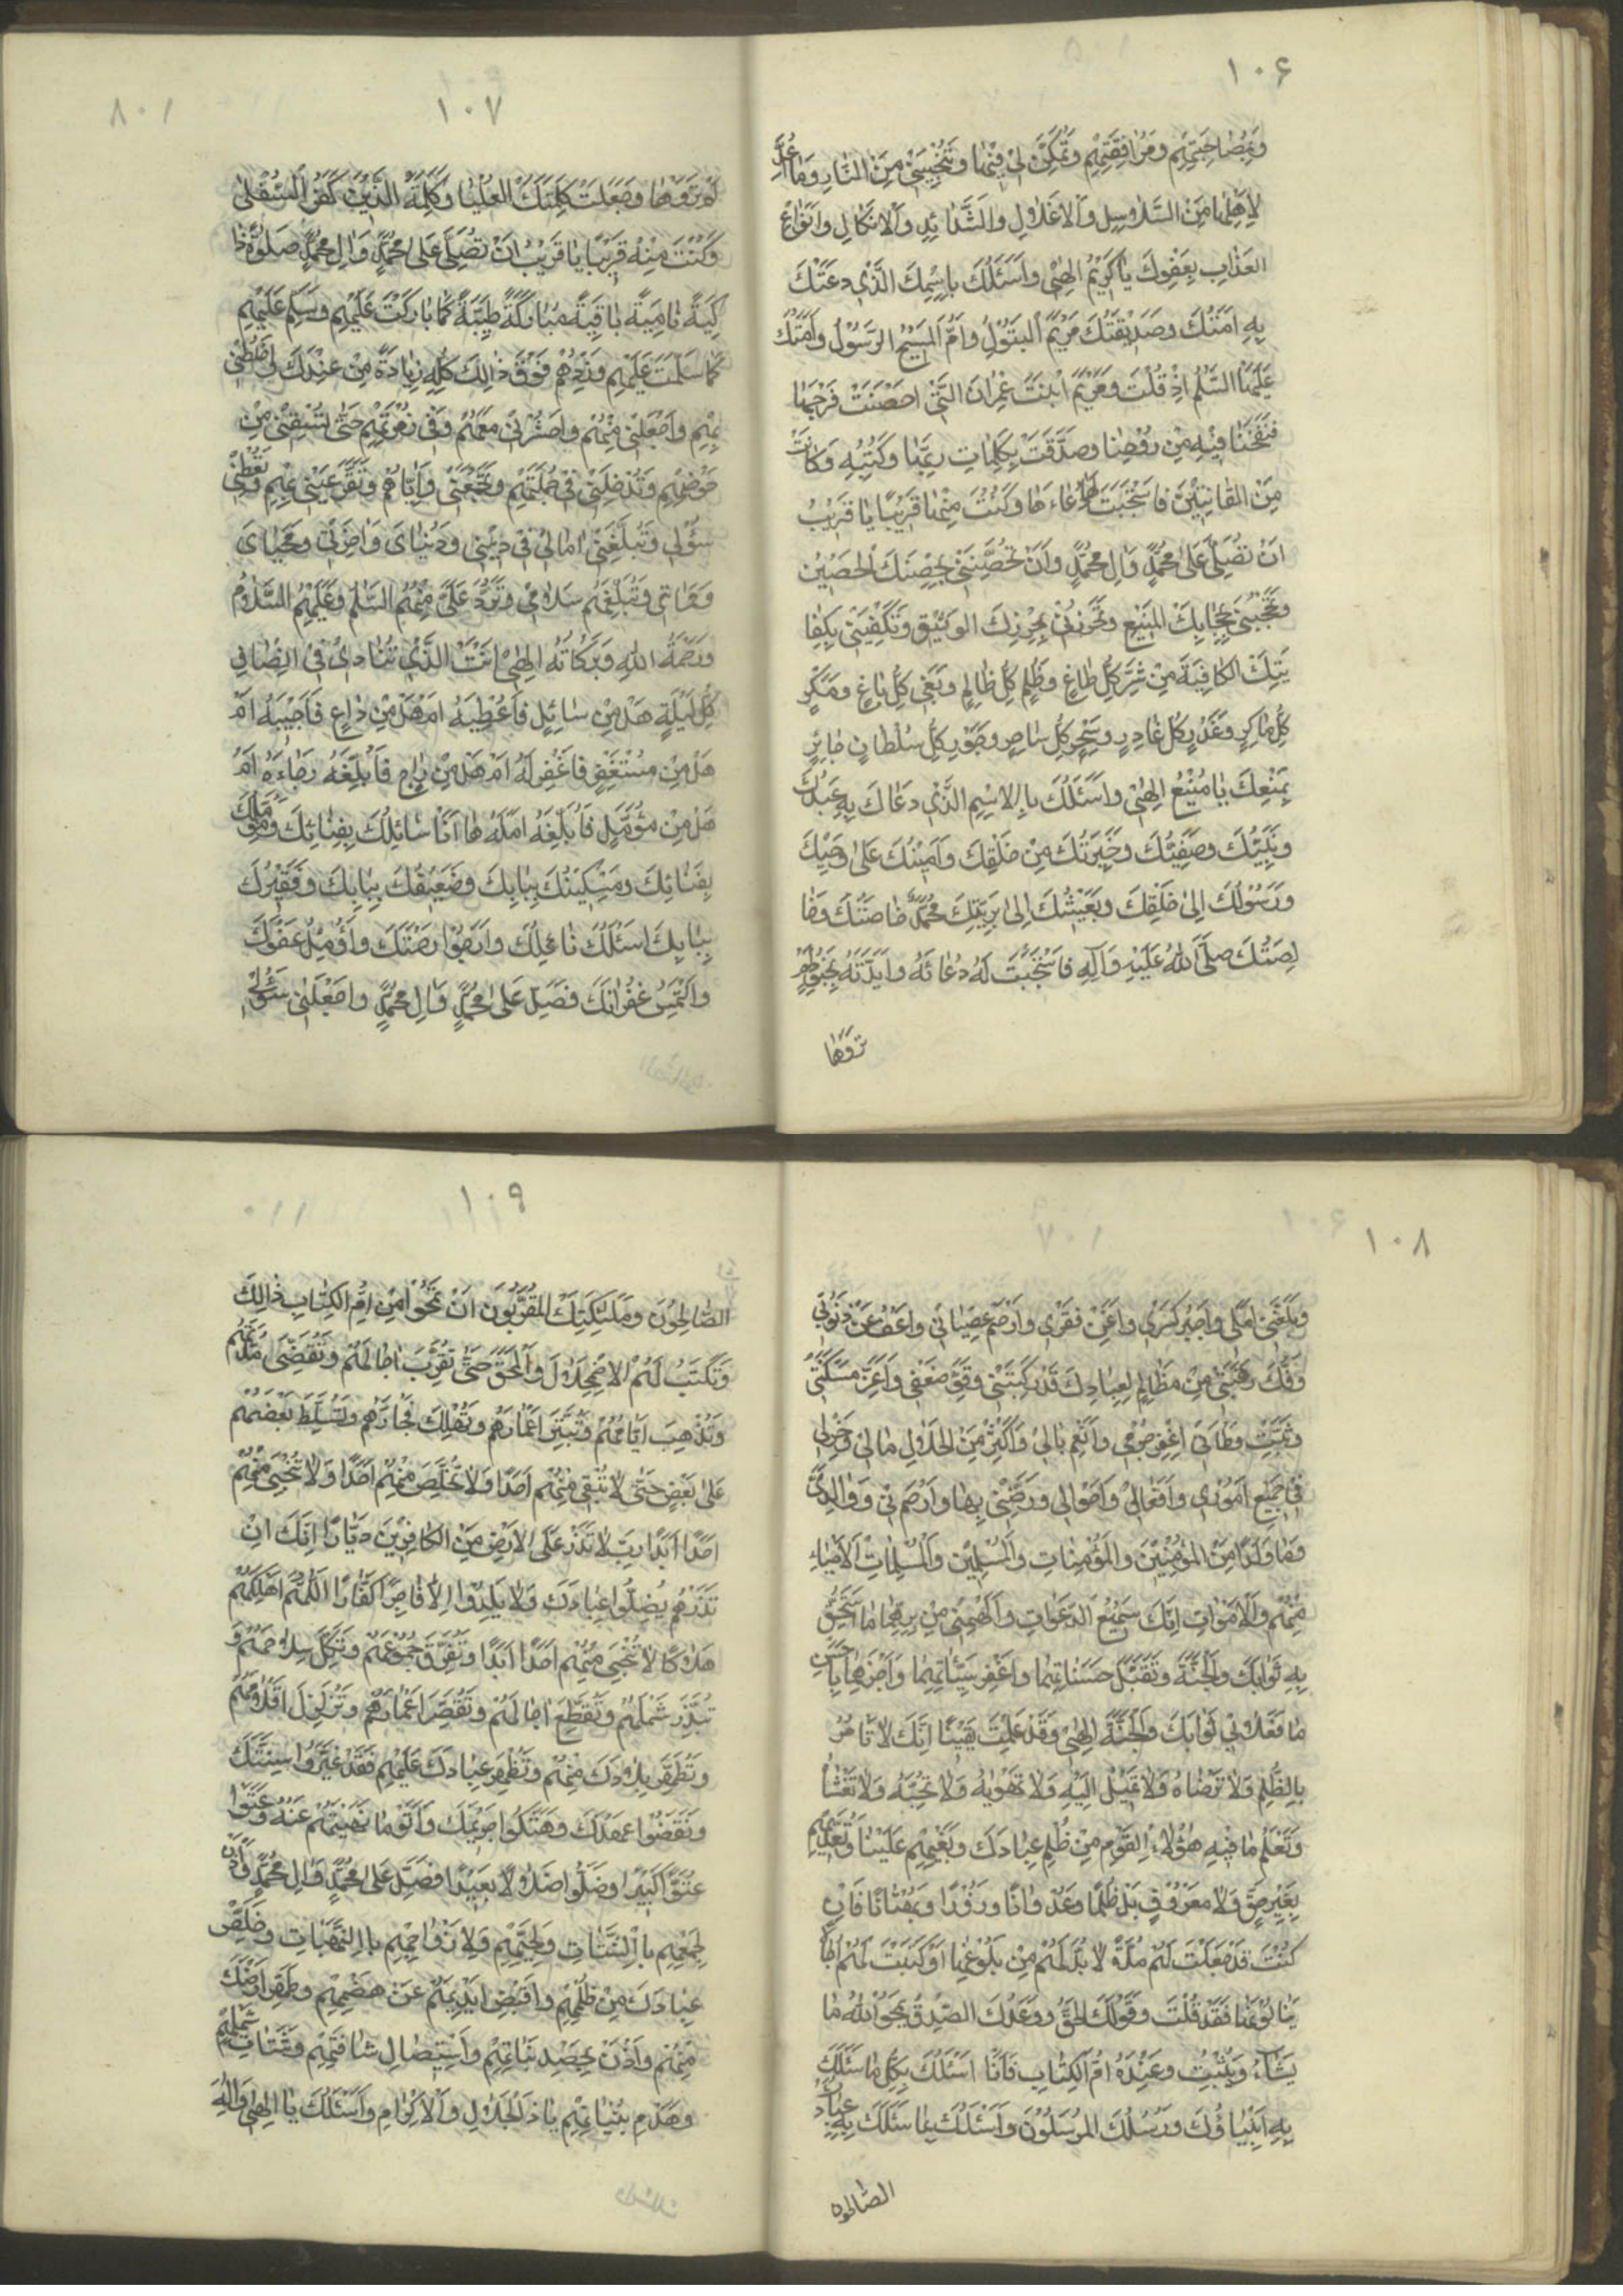 ١٠۶
وَبِمُصَاحِبَتِهِمْ وَمُرَافَقَتِهِمْ وَتُمَكِّنَ لِي فِيهَا وَتُنَجِّيَنِي مِنَ النَّارِ وَمَا أُعِدَّ
لِأَهْلِهَا مِنَ السَّلَاسِلِ وَالْأَغْلَالِ وَالشَّدَائِدِ وَالْأَنْكَالِ وَأَنْوَاعِ
الْعَذَابِ بِعَفْوِكَ يَا كَرِيمُ إِلَهِي وَأَسْئَلُكَ بِاسْمِكَ الَّذِي دَعَتْكَ
بِهِ أَمَتُكَ وَصِدِّيقَتُكَ مَرْيَمُ الْبَتُولُ وَأُمُّ الْمَسِيحِ الرَّسُولِ وَأَمَتُكَ
عَلَيْهَا السَّلَمُ إِذْ قُلْتَ وَمَرْيَمَ ابْنَتَ عِمْرَانَ الَّتِي أَحْصَنَتْ فَرْجَهَا
فَنَفَخْنَا فِيهِ مِنْ رُوحِنَا وَصَدَّقَتْ بِكَلِمَاتِ رَبِّهَا وَكُتُبِهِ وَكَانَتْ
مِنَ الْقَانِتِينَ فَاسْتَجَبْتَ لَهَا دُعَاءَهَا وَكُنْتَ مِنْهَا قَرِيبًا يَا قَرِيبُ
أَنْ تُصَلِّيَ عَلَى مُحَمَّدٍ وَآلِ مُحَمَّدٍ وَأَنْ تُحَصِّنَنِي بِحِصْنِكَ الْحَصِينِ
وَتَحْجُبَنِي بِحِجَابِكَ الْمَنِيعِ وَتُحْرِزَنِي بِحِرْزِكَ الْوَثِيقِ وَتَكْفِيَنِي بِكِفَا
يَتِكَ الْكَافِيَةِ مِنْ شَرِّ كُلِّ طَاغٍ وَظُلْمِ كُلِّ ظَالِمٍ وَبَغْيِ كُلِّ بَاغٍ وَمَكْرِ
كُلِّ مَاكِرٍ وَغَدْرِ كُلِّ غَادِرٍ وَسِحْرِ كُلِّ سَاحِرٍ وَجَوْرِ كُلِّ سُلْطَانٍ جَائِرٍ
بِمَنْعِكَ يَا مَنِيعُ إِلَهِي وَأَسْئَلُكَ بِالْاسْمِ الَّذِي دَعَاكَ بِهِ عَبْدُكَ
وَنَبِيُّكَ وَصَفِيُّكَ وَخِيَرَتُكَ مِنْ خَلْقِكَ وَأَمِينُكَ عَلَى وَحْيِكَ
وَرَسُولُكَ إِلَى خَلْقِكَ وَبَعِيثُكَ إِلَى بَرِيَّتِكَ مُحَمَّدٌ خَاصَّتُكَ وَخَا
لِصَتُكَ صَلَّى اللهُ عَلَيْهِ وَآلِهِ فَاسْتَجَبْتَ لَهُ دُعَائَهُ وَأَيَّدْتَهُ بِجُنُودٍ لَمْ
تروها
١٠٧
لَمْ تَرَوْهَا وَجَعَلْتَ كَلِمَتَكَ الْعُلْيَا وَكَلِمَةَ الَّذِينَ كَفَرُوا السُّفْلَى
وَكُنْتَ مِنْهُ قَرِيبًا يَا قَرِيبُ أَنْ تُصَلِّيَ عَلَى مُحَمَّدٍ وَآلِ مُحَمَّدٍ صَلَوةً زَا
كِيَةً نَامِيَةً بَاقِيَةً مُبَارَكَةً طَيِّبَةً كَمَا بَارَكْتَ عَلَيْهِمْ وَسَلِّمْ عَلَيْهِمْ
كَمَا سَلَّمْتَ عَلَيْهِمْ وَزِدْهُمْ فَوْقَ ذَالِكَ كُلِّهِ زِيَادَةً مِنْ عِنْدِكَ وَاخْلُطْنِي
بِهِمْ وَاجْعَلْنِي مِنْهُمْ وَاحْشُرْنِي مَعَهُمْ وَفِي زُمْرَتِهِمْ حَتَّى تُسْقِيَنِي مِنْ
حَوْضِهِمْ وَتُدْخِلَنِي فِي جُمْلَتِهِمْ وَتَجْمَعَنِي وَإِيَّاهُمْ وَتُقِرَّ عَيْنِي بِهِمْ وَتُعْطِيَنِي
سُؤْلِي وَتُبَلِّغَنِي آمَالِي فِي دِينِي وَدُنْيَايَ وَآخِرَتِي وَمَحْيَايَ
وَمَمَاتِي وَتُبَلِّغَهُمْ سَلَامِي وَتَرُدَّ عَلَيَّ مِنْهُمُ السَّلَمَ وَعَلَيْهِمُ السَّلَامُ
وَرَحْمَةُ اللهِ وَبَرَكَاتُهُ إِلَهِي أَنْتَ الَّذِي تُنَادِي فِي أَنْصَافِ
كُلِّ لَيْلَةٍ هَلْ مِنْ سَائِلٍ فَأُعْطِيَهُ أَمْ هَلْ مِنْ دَاعٍ فَأُجِيبَهُ أَمْ
هَلْ مِنْ مُسْتَغْفِرٍ فَأَغْفِرَ لَهُ أَمْ هَلْ مِنْ رَاجٍ فَأُبَلِّغَهُ رَجَاءَهُ أَمْ
هَلْ مِنْ مُؤَمِّلٍ فَأُبَلِّغَهُ أَمَلَهُ هَا أَنَا سَائِلُكَ بِفِنَائِكَ وَمُؤَمِّلُكَ
بِفِنَائِكَ وَمِسْكِينُكَ بِبَابِكَ وَضَعِيفُكَ بِبَابِكَ وَفَقِيرُكَ
بِبَابِكَ أَسْئَلُكَ نَائِلَكَ وَأَرْجُو رَحْمَتَكَ وَأُؤَمِّلُ عَفْوَكَ
وَأَلْتَمِسُ غُفْرَانَكَ فَصَلِّ عَلَى مُحَمَّدٍ وَآلِ مُحَمَّدٍ وَأَعْطِنِي سُؤْلِي
١٠٨
وَبَلِّغْنِي أَمَلِي وَاجْبُرْ كَسْرِي وَأَغْنِ فَقْرِي وَارْحَمْ عِصْيَانِي وَاعْفُ عَنْ ذُنُوبِي
وَفُكَّ رَقَبَتِي مِنْ مَظَالِمٍ لِعِبَادِكَ قَدْ رَكِبَتْنِي وَقَوِّ ضَعْفِي وَأَعِزَّ مَسْكَنَتِي
وَثَبِّتْ وَطْأَتِي اغْفِرْ جُرْمِي وَأَنْعِمْ بَالِي وَأَكْثِرْ مِنَ الْحَلَالِ مَالِي وَخِرْ لِي
فِي جَمِيعِ أُمُورِي وَأَفْعَالِي وَأَحْوَالِي وَرَضِّنِي بِهَا وَارْحَمْنِي وَوَالِدَيَّ
وَمَا وَلَدَا مِنَ الْمُؤْمِنِينَ وَالْمُؤْمِنَاتِ وَالْمُسْلِمِينَ وَالْمُسْلِمَاتِ الْأَحْيَاءِ
مِنْهُمْ وَالْأَمْوَاتِ إِنَّكَ سَمِيعُ الدَّعَوَاتِ وَأَلْهِمْنِي مِنْ بِرِّهِمَا مَا أَسْتَحِقُّ
بِهِ ثَوَابَكَ وَالْجَنَّةَ وَتَقَبَّلْ حَسَنَاتِهِمَا وَاغْفِرْ سَيِّئَاتِهِمَا وَاجْزِهِمَا بِأَحْسَنِ
مَا فَعَلَا بِي ثَوَابَكَ وَالْجَنَّةَ إِلَهِي وَقَدْ عَلِمْتُ يَقِينًا إِنَّكَ لَا تَأْمُرُ
بِالظُّلْمِ وَلَا تَرْضَاهُ وَلَا تَمِيلُ إِلَيْهِ وَلَا تَهْوَاهُ وَلَا تُحِبُّهُ وَلَا تَغْشَاهُ
وَتَعْلَمُ مَا فِيهِ هَؤُلَاءِ الْقَوْمِ مِنْ ظُلْمِ عِبَادِكَ وَبَغْيِهِمْ عَلَيْنَا وَتَعَدِّيهِمْ
بِغَيْرِ حَقٍّ وَلَا مَعْرُوفٍ بَلْ ظُلْمًا وَعُدْوَانًا وَزُورًا وَبُهْتَانًا فَإِنْ
كُنْتَ قَدْ جَعَلْتَ لَهُمْ مُدَّةً لَا بُدَّ لَهُمْ مِنْ بُلُوغِهَا أَوْ كَتَبْتَ لَهُمْ آجَالًا
يَنَالُونَهَا فَقَدْ قُلْتَ وَقَوْلُكَ الْحَقُّ وَوَعْدُكَ الصِّدْقُ يَمْحُو اللهُ مَا
يَشَاءُ وَيُثْبِتُ وَعِنْدَهُ أُمُّ الْكِتَابِ فَأَنَا أَسْئَلُكَ بِكُلِّ مَا سَئَلَكَ
بِهِ أَنْبِيَاؤُكَ وَرُسُلُكَ الْمُرْسَلُونَ وَأَسْئَلُكَ بِمَا سَئَلَكَ بِهِ عِبَادُكَ
الصالحون
١٠٩
الصَّالِحُونَ وَمَلَئِكَتُكَ الْمُقَرَّبُونَ أَنْ تَمْحُوَ مِنْ أُمِّ الْكِتَابِ ذَالِكَ
وَتَكْتُبَ لَهُمُ الْاضْمِحْلَالَ وَالْمَحْقَ حَتَّى تُقَرِّبَ آجَالَهُمْ وَتَقْضِيَ مُدَّتَهُمْ
وَتُذْهِبَ أَيَّامَهُمْ وَتُبَتِّرَ أَعْمَارَهُمْ وَتُهْلِكَ فُجَّارَهُمْ وَتُسَلِّطَ بَعْضَهُمْ
عَلَى بَعْضٍ حَتَّى لَا تُبْقِيَ مِنْهُمْ أَحَدًا وَلَا تُخَلِّصَ مِنْهُمْ أَحَدًا وَلَا تُنْجِيَ مِنْهُمْ
أَحَدًا أَبَدًا رَبِّ لَا تَذَرْ عَلَى الْأَرْضِ مِنَ الْكَافِرِينَ دَيَّارًا إِنَّكَ إِنْ
تَذَرْهُمْ يُضِلُّوا عِبَادَكَ وَلَا يَلِدُوا إِلَّا فَاجِرًا كَفَّارًا اللَّهُمَّ أَهْلِكْهُمْ
هَلَاكًا لَا تُنْجِي مِنْهُمْ أَحَدًا أَبَدًا وَتُفَرِّقَ جُمُوعَهُمْ وَتُكِلَّ سِلَاحَهُمْ وَ
تُبَدِّدَ شَمْلَهُمْ وَتُقَطِّعَ آجَالَهُمْ وَتُقَصِّرَ أَعْمَارَهُمْ وَتُزَلْزِلَ أَقْدَامَهُمْ
وَتُطَهِّرَ بِلَادَكَ مِنْهُمْ وَتُظْهِرَ عِبَادَكَ عَلَيْهِمْ فَقَدْ غَيَّرُوا سُنَّتَكَ
وَنَقَضُوا عَهْدَكَ وَهَتَكُوا حَرِيمَكَ وَأَتَوْا مَا نَهَيْتَهُمْ عَنْهُ وَعَتَوْا
عُتُوًّا كَبِيرًا وَضَلُّوا ضَلَالًا بَعِيدًا فَصَلِّ عَلَى مُحَمَّدٍ وَآلِ مُحَمَّدٍ وَأْذَنْ
لِجَمْعِهِمْ بِالشَّتَاتِ وَلِحَيِّهِمْ وَلِأَزْوَاجِهِمْ بِالنَّهَبَاتِ وَخَلِّصْ
عِبَادَكَ مِنْ ظُلْمِهِمْ وَاقْبِضْ أَيْدِيَهُمْ عَنْ هَضْمِهِمْ وَطَهِّرْ أَرْضَكَ
مِنْهُمْ وَأْذَنْ بِحَصْدِ نَبَاتِهِمْ وَاسْتِيصَالِ شَافَتِهِمْ وَشَتَاتِ شَمْلِهِمْ
وَهَدْمِ بُنْيَانِهِمْ يَا ذَا الْجَلَالِ وَالْإِكْرَامِ وَأَسْئَلُكَ يَا إِلَهِي وَإِلَهَ